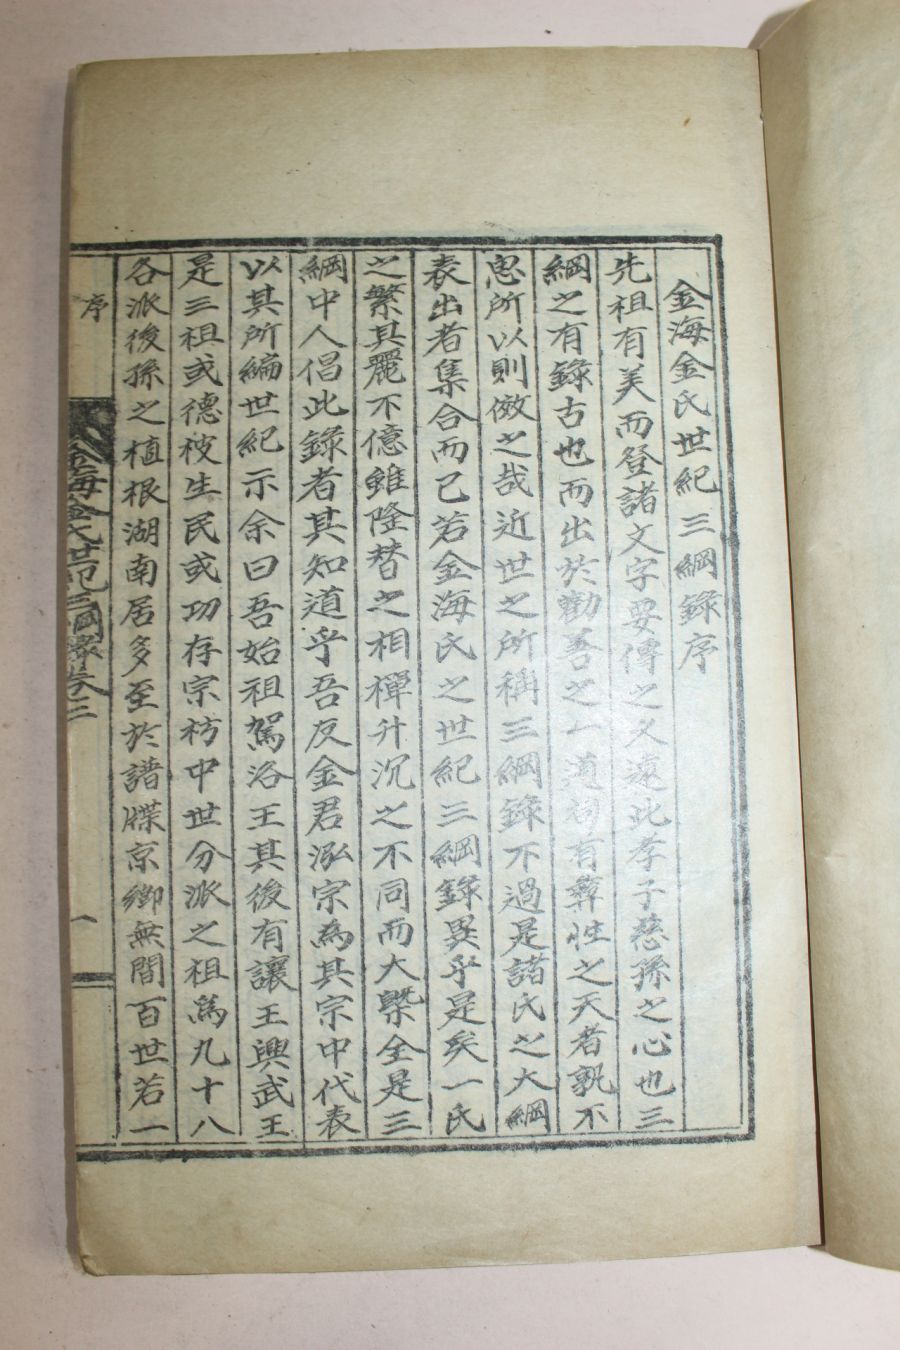 金海金氏世紀三綱錄序
先祖有美而登諸文字要傳之久遠此孝子慈孫之心也三
綱之有錄古也而出於勸善之一道詞有彛性之天者孰不
思所以則倣之哉近世之所稱三綱錄不過是諸氏之大綱
表出者集合而已若金海氏之世紀三綱錄異乎是矣一氏
之繁其麗不億雖隆替之相禪升沉之不同而大槩全是三
綱中人倡此錄者其知道乎吾友金君泓宗為其宗中代表
以其所編世紀示余曰吾始祖駕洛王其後有讓王興武王
是三祖或德被生民或功存宗祊中世分派之祖爲九十八
各派後孫之植根湖南居多至於譜牒京鄉無間百世若一
序
金海金氏世紀三綱錄卷之三
一